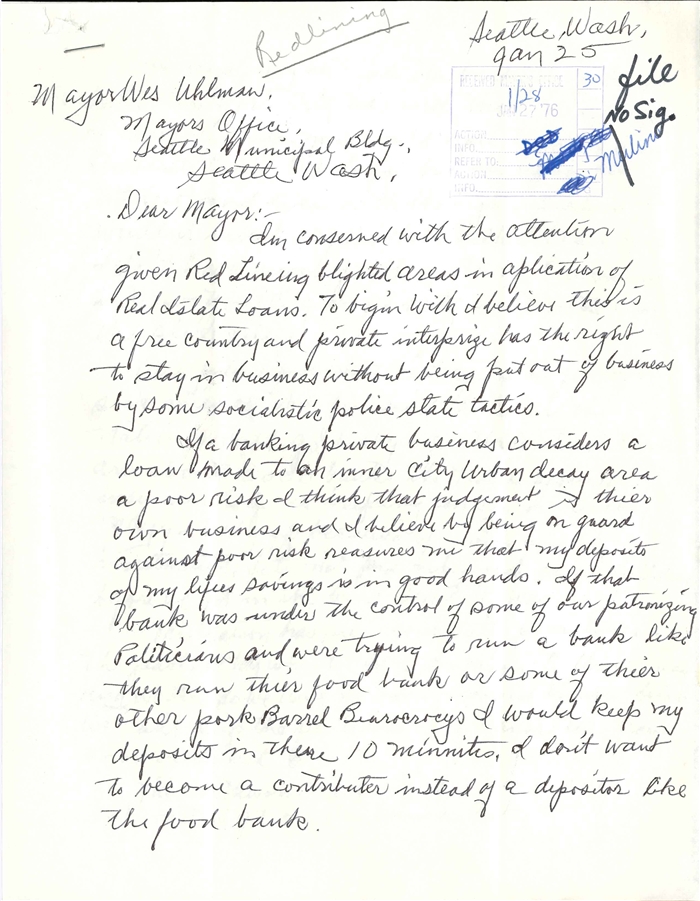 Redlining
Seattle, Wash,
Jan 25
Mayor Wes Uhlman,
Mayors Office,
Seattle Municipal Bldg.,
Seattle Wash,
RECEIVED MAYOR'S OFFICE
30
1/28
JAN 27 '76
ACTION
INFO.
REFER TO:
ACTION
INFO.
file
No Sig.
Dear Mayor:-
Im conserned with the attention
given Red Lineing blighted areas in aplication of
Real Estate Loans. To begin with I believe this is
a free country and private interprize has the right
to stay in business without being put out of business
by some socialistic police state tactics.
If a banking private business considers a
loan made to an inner City Urban decay area
a poor risk I think that judgement is thier
own business and I believe by being on guard
against poor risk reasures me that my deposits
of my lifes savings is in good hands. If that
bank was under the control of some of our patronizing
Politicians and were trying to run a bank like
they run thier food bank or some of thier
other pork Barrel Beurocrocys I would keep my
deposits in there 10 minnites, I don't want
to become a contributer instead of a depositor like
the food bank.